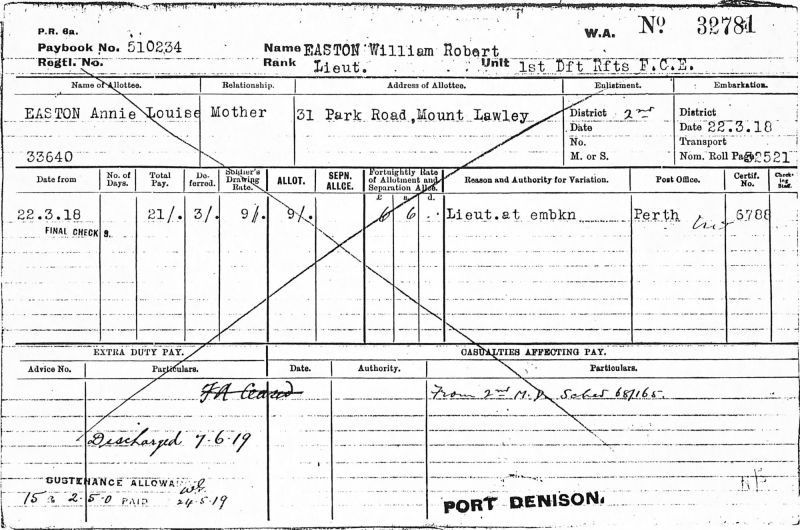 P.R. 6a.
W.A. No 32781
Paybook No. 510234 Name EASTON William Robert
Regtl. No. Rank Lieut. Unit 1st Dft Rfts F.C.E.
Name of Allottee. Relationship. Address of Allottee. Enlistment. Embarkation.
EASTON Annie Louise Mother 31 Park Road, Mount Lawley District 2nd District
Date Date 22.3.18
No. Transport
33640 M. or S. Nom. Roll Page 32521
Date from No. of Days. Total Pay. Deferred. Soldier's Drawing Rate. ALLOT. SEPN. ALLCE. Fortnightly Rate of Allotment and Separation Allce. Reason and Authority for Variation. Post Office. Certif. No. Checking Staff.
£ s. d.
22.3.18 21/. 3/. 9/. 9/. 6 6 .. Lieut.at embkn Perth 6788
FINAL CHECK
EXTRA DUTY PAY. CASUALTIES AFFECTING PAY.
Advice No. Particulars. Date. Authority. Particulars.
From 2nd M.D. Sched 68/165.
Discharged 7.6.19
SUSTENANCE ALLOWA
15 2.5.0 PAID 24.5.19
PORT DENISON.